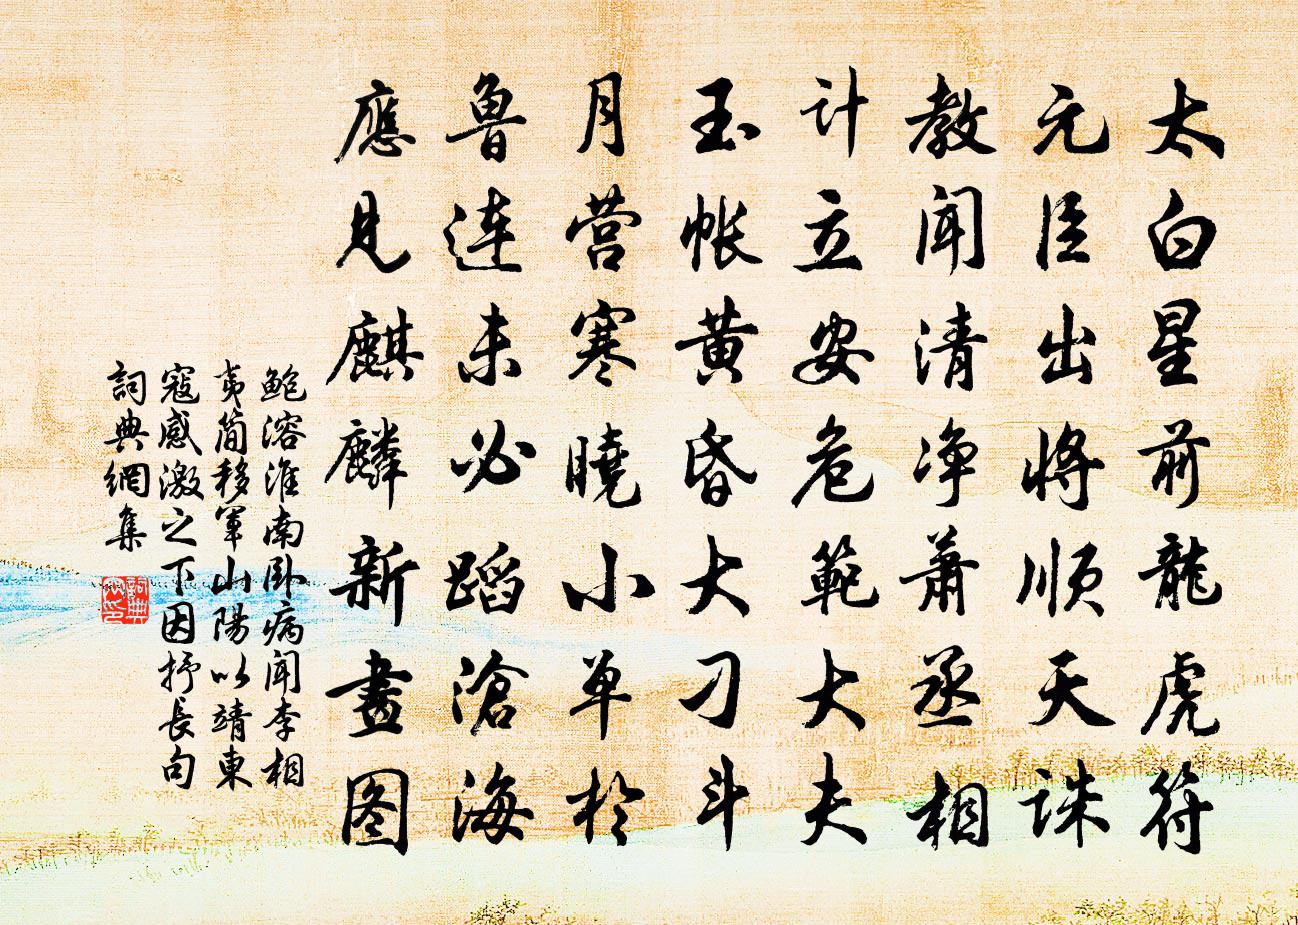 太白星前龍虎符
元臣出將順天誅
教聞清净蕭丞相
计立安危範大夫
玉帐黄昏大刁斗
月营寒曉小单於
魯连未必蹈滄海
應見麒麟新畫图
鲍溶淮南卧病闻李相
夷简移軍山陽以靖東
寇感激之下因抒長句
詞典網集